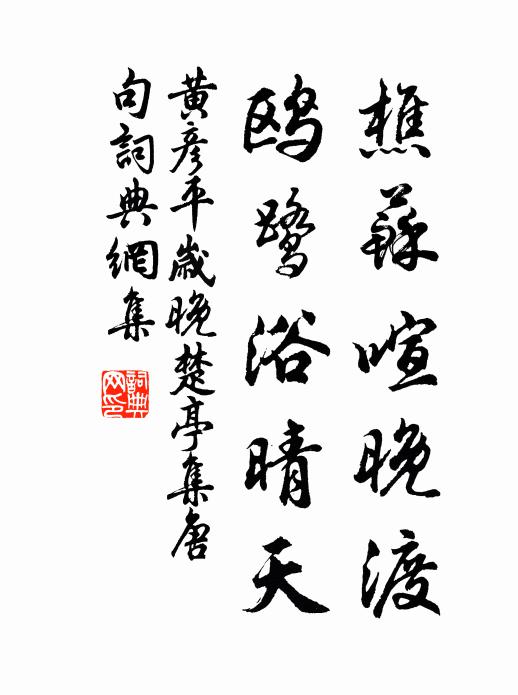 樵蘇喧晚渡
鷗鷺浴晴天
黃彥平歲晚楚亭集唐
句詞典網集
詞典網印